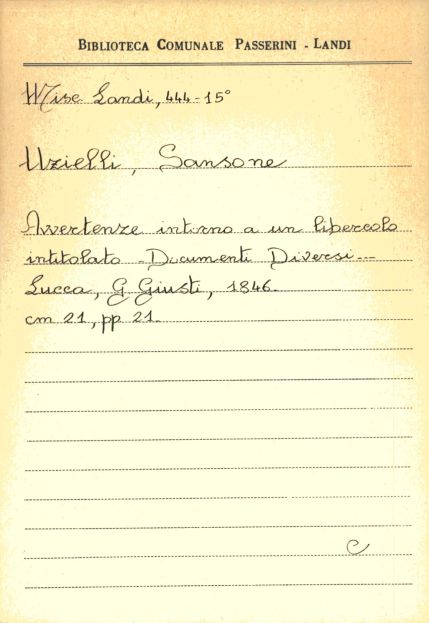 BIBLIOTECA COMUNALE PASSERINI - LANDI
Misc Landi, 444-15°
Uzielli, Sansone
Avvertenze intorno a un libercolo
intitolato - Documenti Diversi...
Lucca, G Giusti, 1846.
cm 21, pp 21.
C